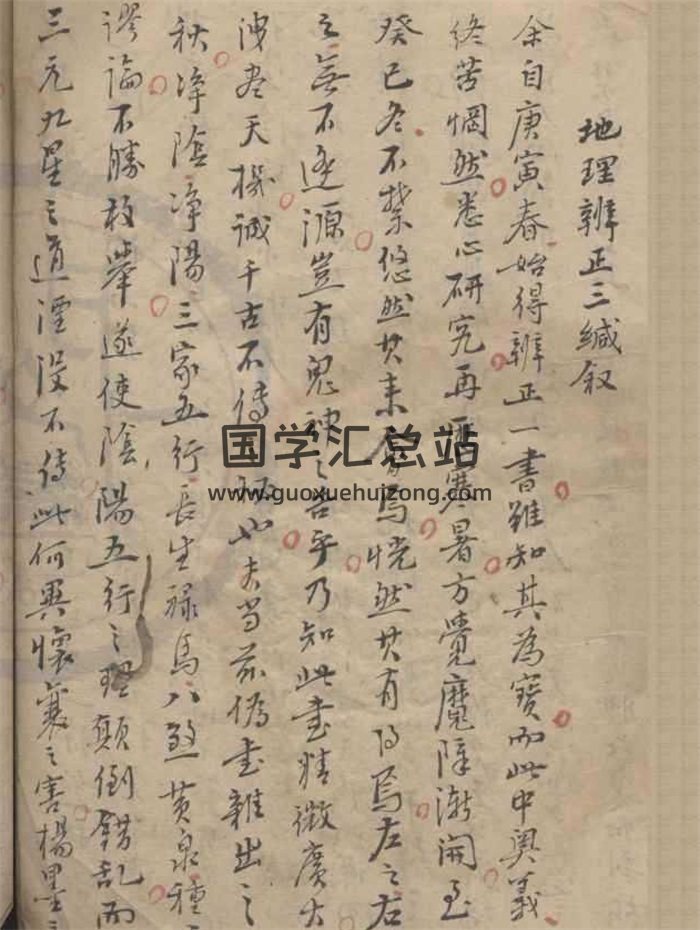 地理辨正三緘叙
余自庚寅春始得辨正一書雖知其為寶而此中奥義
終苦惘然悉心研究再歷寒暑方覺魔障漸開至
癸巳冬不禁悠然其來會焉恍然其有得焉左之右
之無不逢源豈有鬼神之告乎乃知此書精微廣大
洩盡天機誠千古不傳秘也夫当兹偽書雜出之
秋淨陰淨陽三家五行長生祿馬八煞黄泉種〻
謬論不勝枚舉遂使陰陽五行之理顛倒錯乱而
三元九星之道湮没不傳此何異懷襄之害楊墨之
国学汇总站
www.guoxuehuizong.com